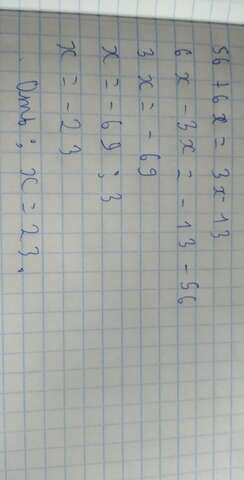 56+6x=3x-13
6x-3x=-13-56
3x=-69
x=-69:3
x=-23
Отв: x=23.